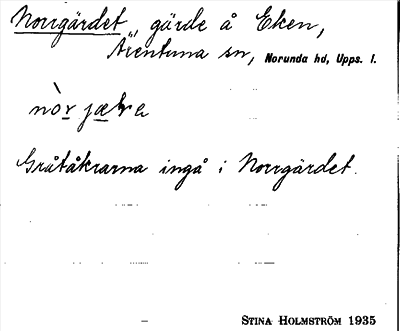 Norrgärdet, gärde å Eken,
Ärentuna sn, Norunda hd, Upps. l.
Gråtåkrarna ingå i Norrgärdet.
STINA HOLMSTRÖM 1935